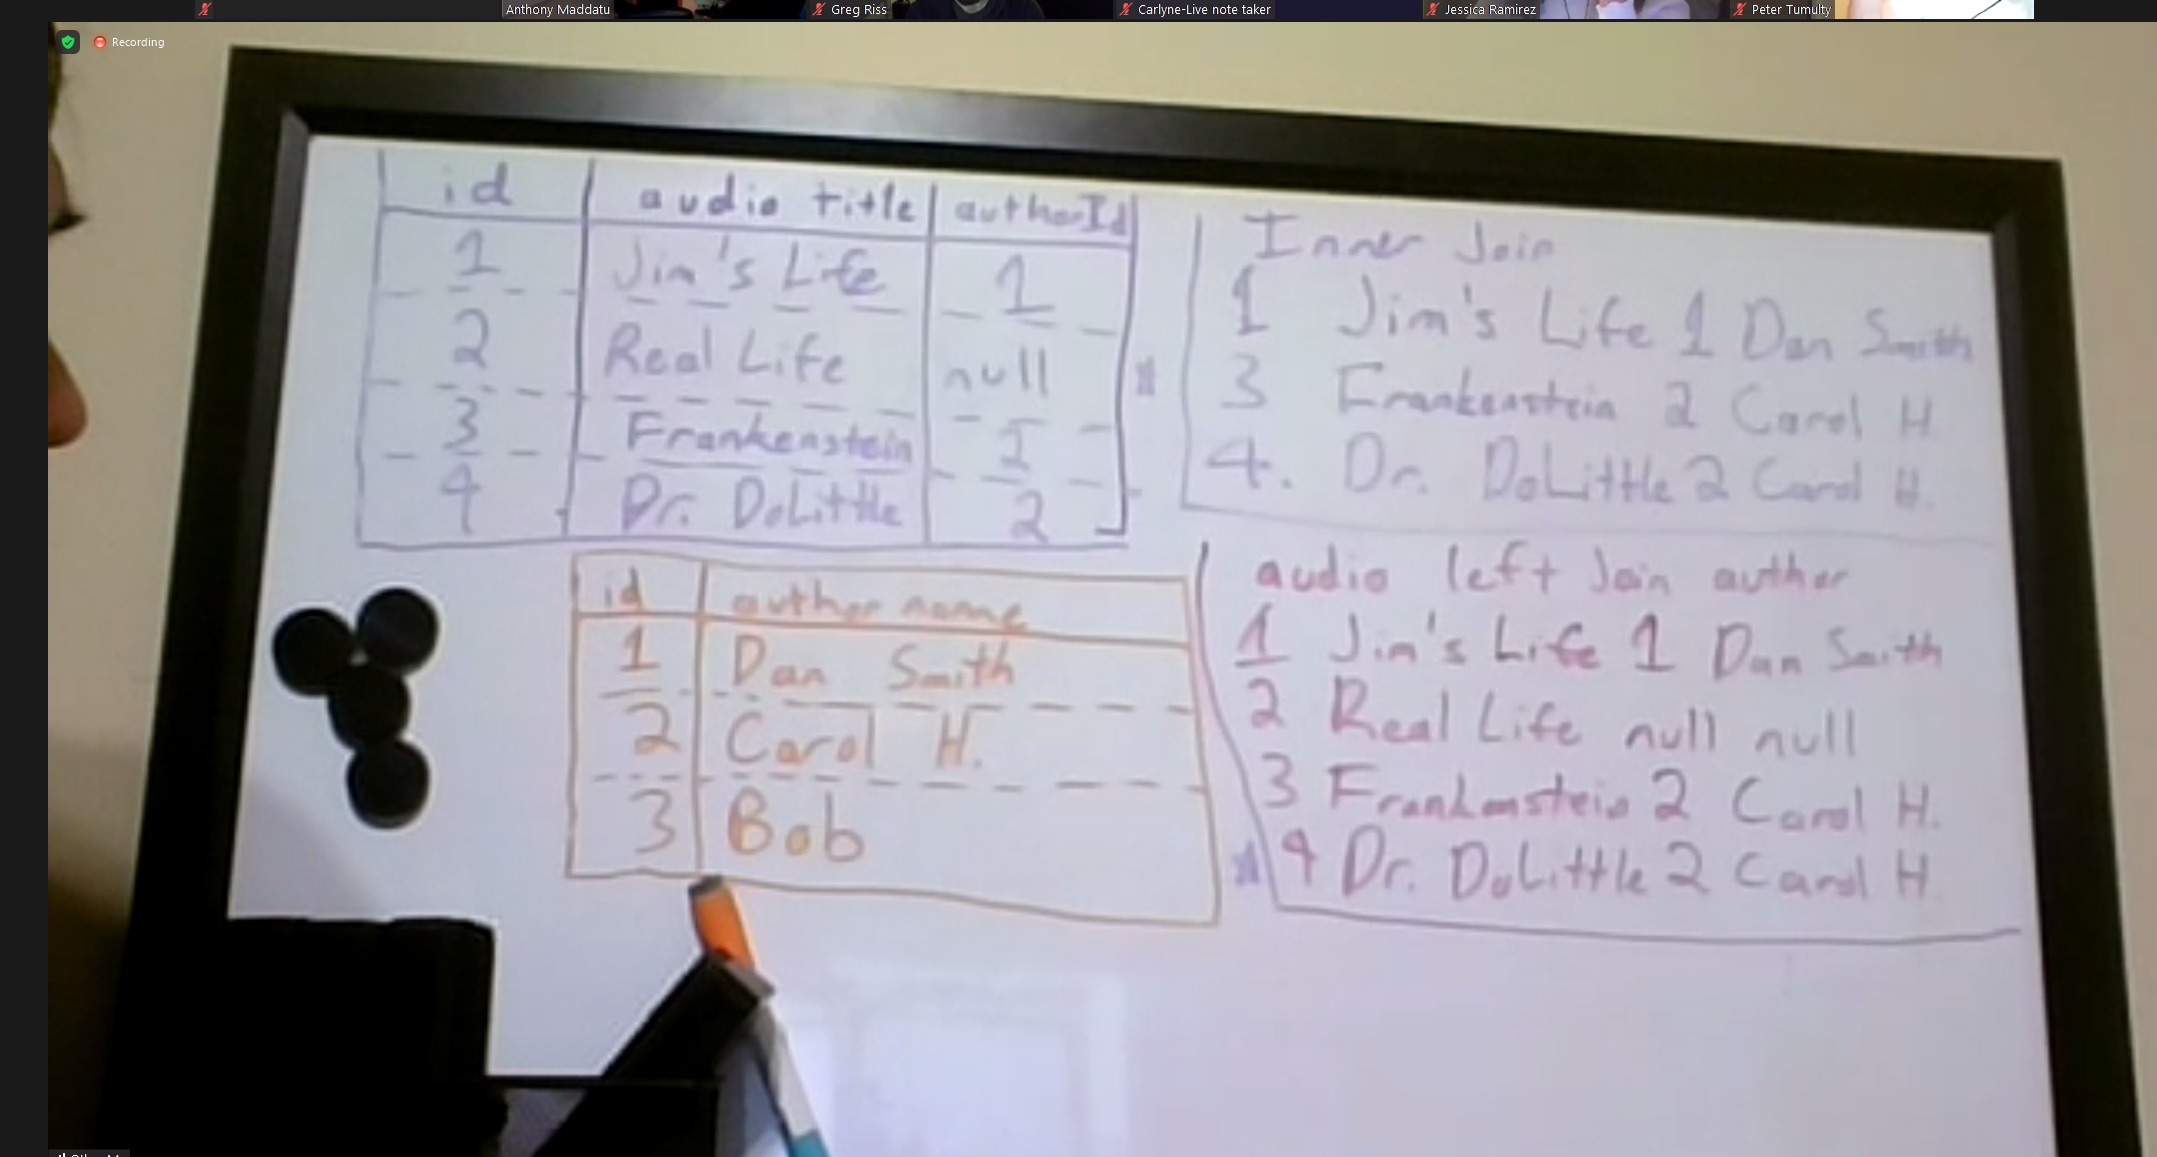 Anthony Maddatu Greg Riss Carlyne-Live note taker Jessica Ramirez Peter Tumulty
Recording
id audio title authorId
1 Jim's Life 1
2 Real Life null
3 Frankenstein 2
4 Dr. DoLittle 2
id author name
1 Dan Smith
2 Carol H.
3 Bob
Inner Join
1 Jim's Life 1 Dan Smith
3 Frankenstein 2 Carol H
4. Dr. DoLittle 2 Carol H.
audio left Join author
1 Jim's Life 1 Dan Smith
2 Real Life null null
3 Frankenstein 2 Carol H.
4 Dr. DoLittle 2 Carol H